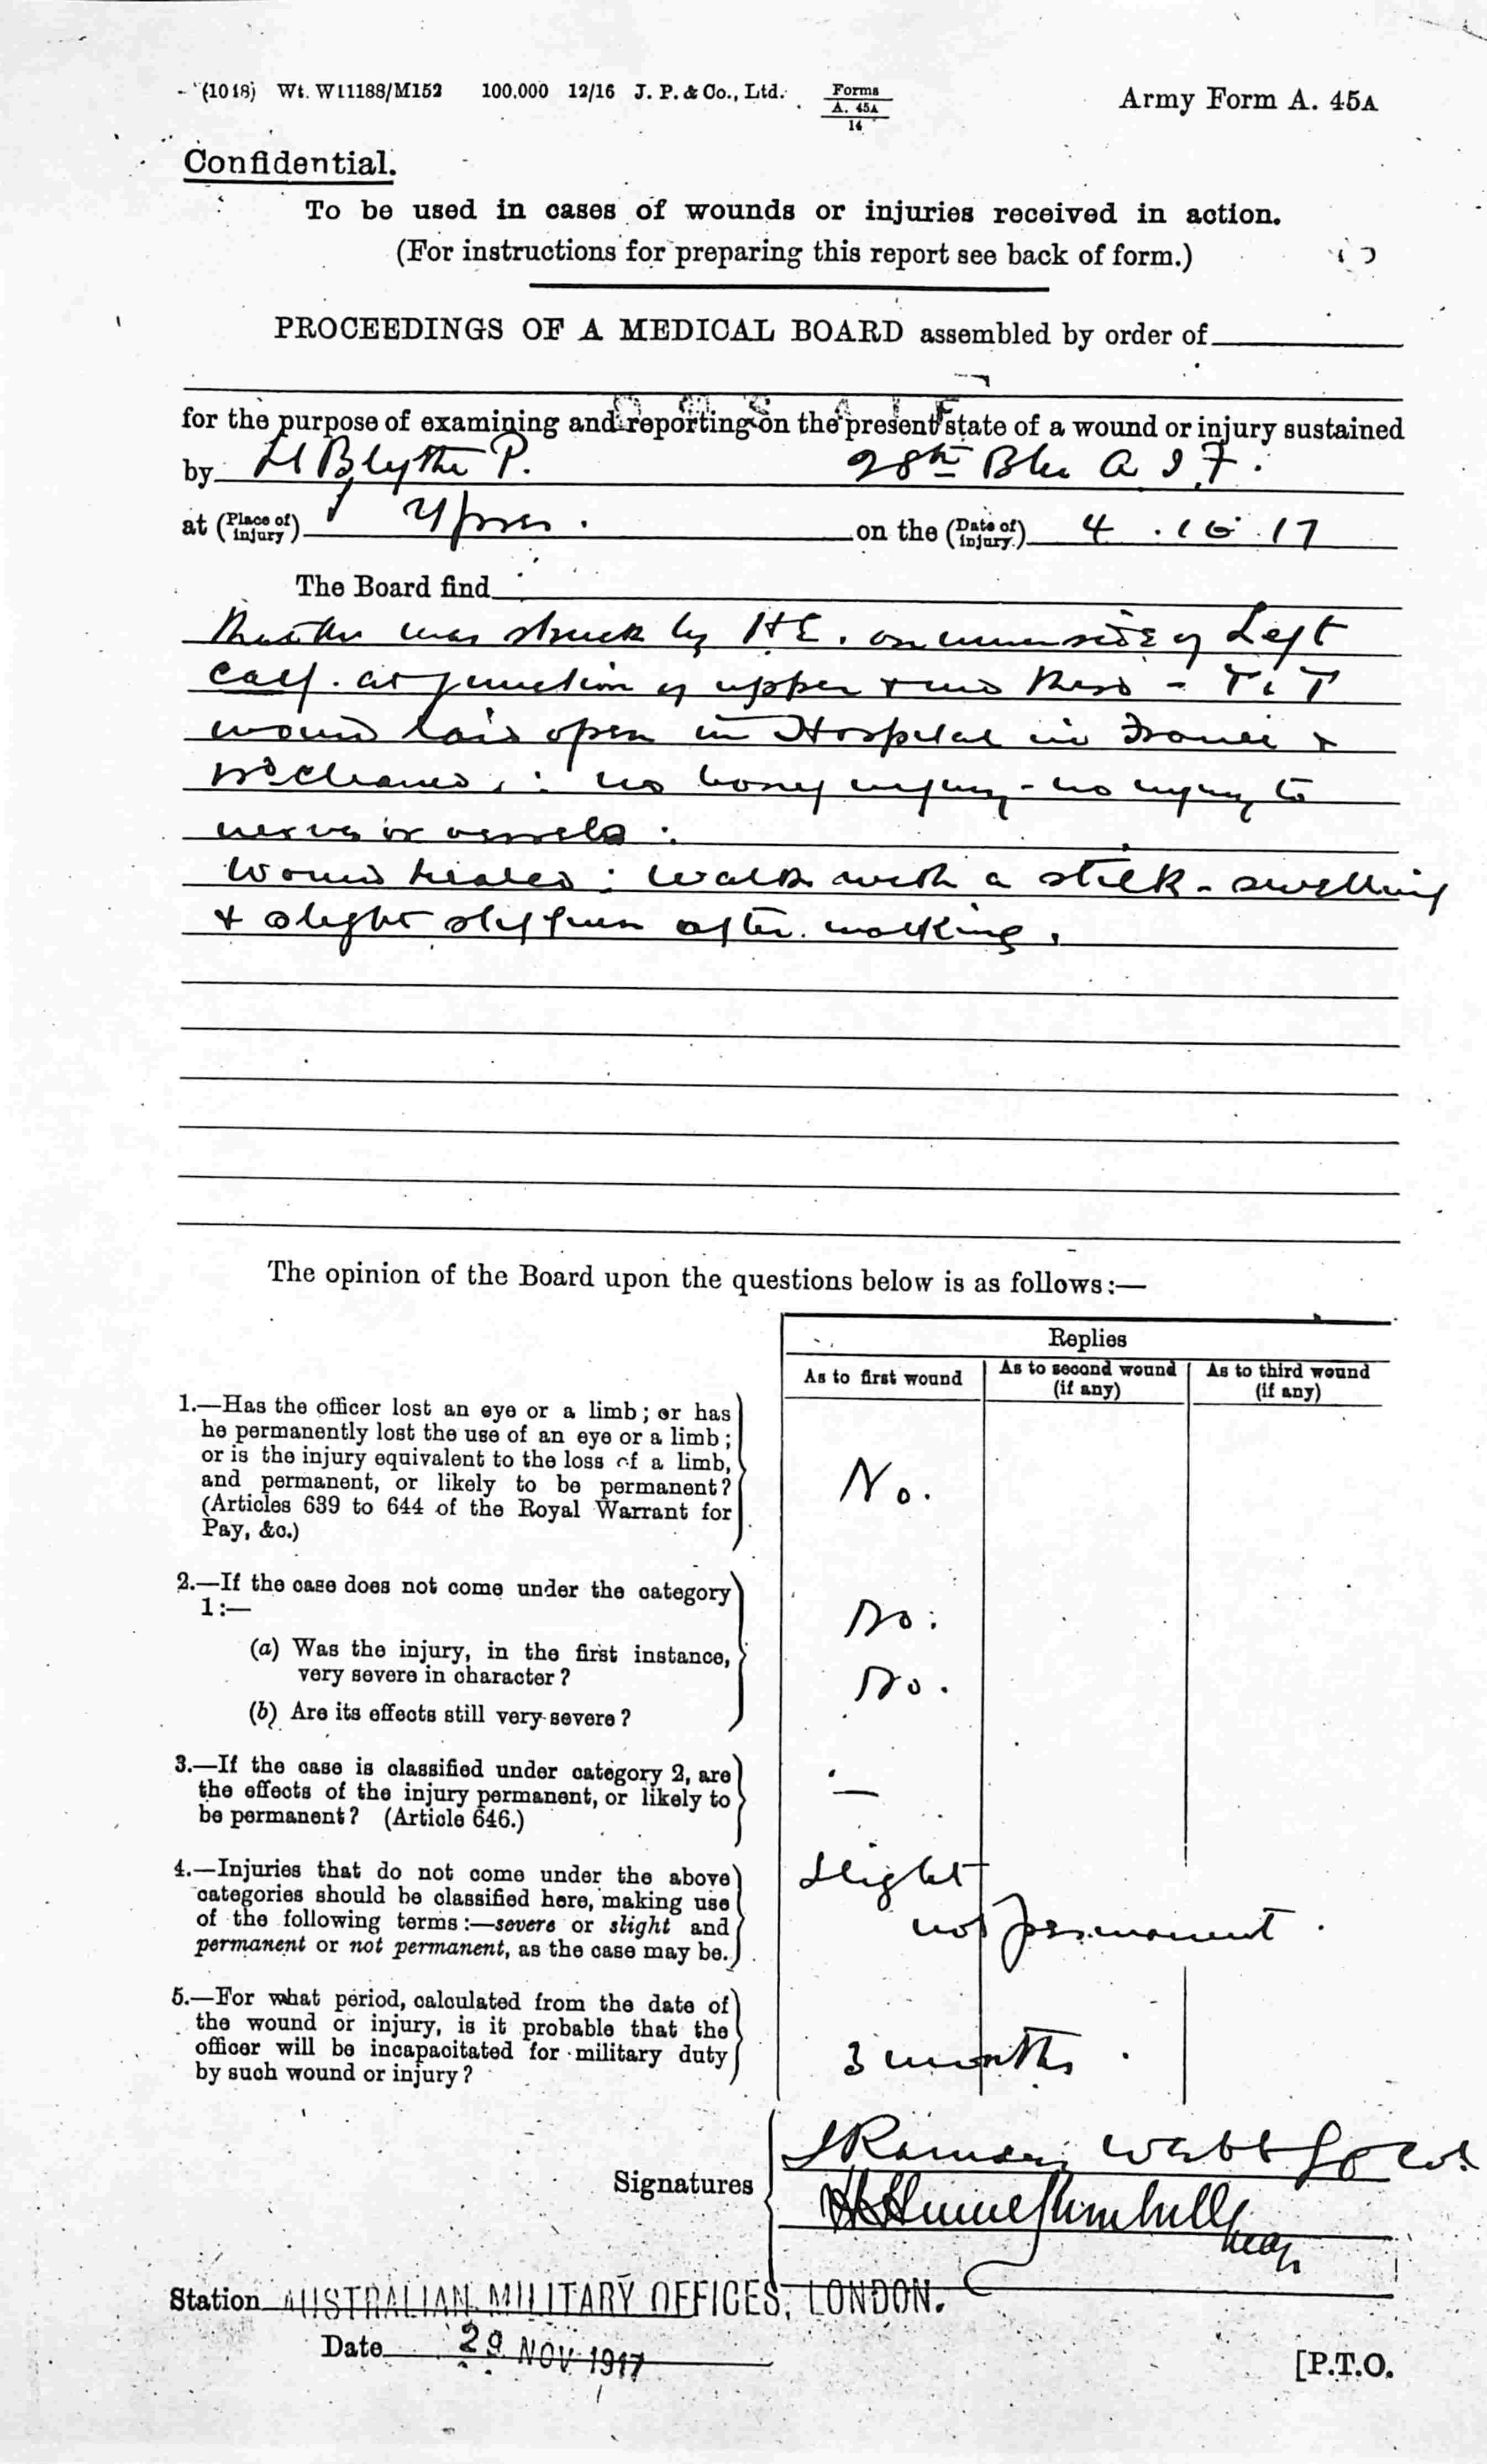 (1018) Wt. W11188/M152 100.000 12/16 J. P. & Co., Ltd. Forms A. 45A 14
Army Form A. 45A
Confidential.
To be used in cases of wounds or injuries received in action.
(For instructions for preparing this report see back of form.)
PROCEEDINGS OF A MEDICAL BOARD assembled by order of
for the purpose of examining and reporting on the present state of a wound or injury sustained
by Blythe P. 28th A I F.
at (Place of injury) Ypres. on the (Date of injury) 4.10.17
The Board find
was struck by H.E. on inner side of Left
calf. at junction of upper & mid third - T & T
wound laid open in Hospital in France &
no boney injury - no injury to
nerves or vessels.
Wound healed: walks with a stick - swelling
& slight stiffness after walking.
The opinion of the Board upon the questions below is as follows:—
Replies
As to first wound
As to second wound (if any)
As to third wound (if any)
1.—Has the officer lost an eye or a limb; or has
he permanently lost the use of an eye or a limb;
or is the injury equivalent to the loss of a limb,
and permanent, or likely to be permanent?
(Articles 639 to 644 of the Royal Warrant for
Pay, &c.)
No.
2.—If the case does not come under the category
1:—
(a) Was the injury, in the first instance,
very severe in character?
No.
(b) Are its effects still very severe?
No.
3.—If the case is classified under category 2, are
the effects of the injury permanent, or likely to
be permanent? (Article 646.)
—
4.—Injuries that do not come under the above
categories should be classified here, making use
of the following terms:—severe or slight and
permanent or not permanent, as the case may be.
Slight
not permanent.
5.—For what period, calculated from the date of
the wound or injury, is it probable that the
officer will be incapacitated for military duty
by such wound or injury?
3 months.
Signatures
Webb
Station AUSTRALIAN MILITARY OFFICES, LONDON.
Date 29 NOV 1917
[P.T.O.